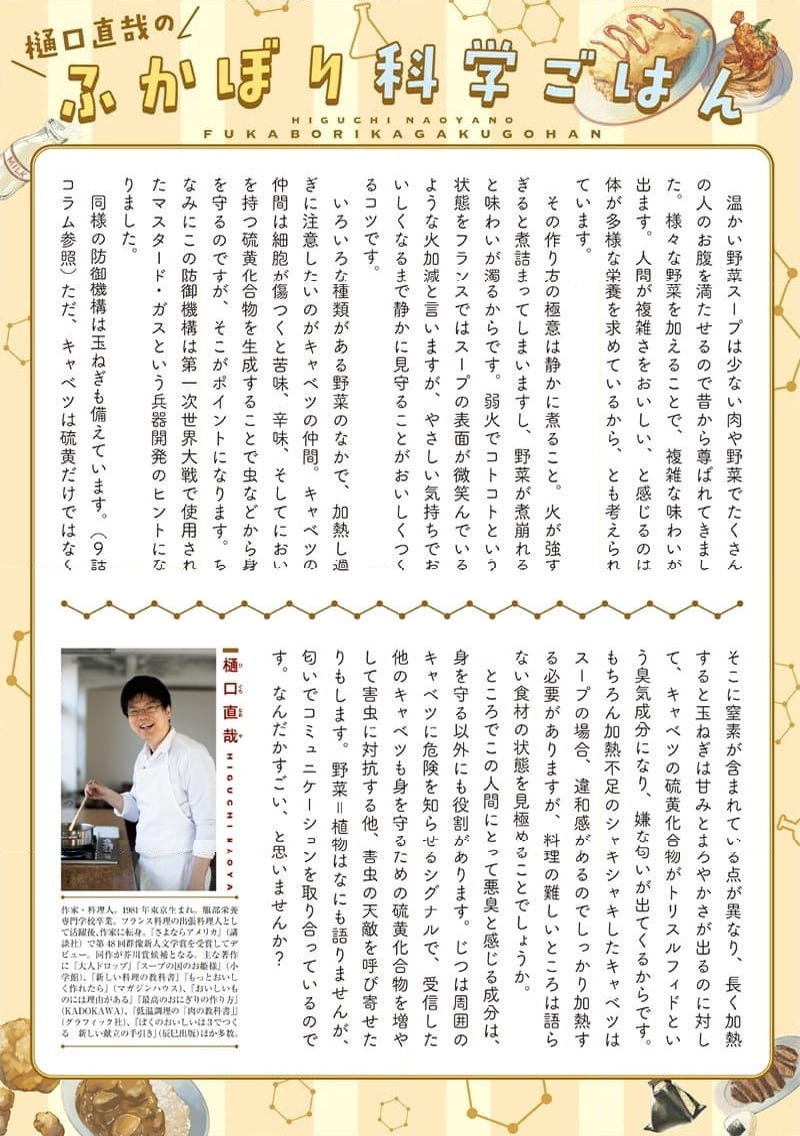 樋口直哉の
ふかぼり科学ごはん
HIGUCHI NAOYANO
FUKABORIKAGAKUGOHAN
MILK
温かい野菜スープは少ない肉や野菜でたくさん
の人のお腹を満たせるので昔から尊ばれてきまし
た。様々な野菜を加えることで、複雑な味わいが
出ます。人間が複雑さをおいしい、と感じるのは
体が多様な栄養を求めているから、とも考えられ
ています。
その作り方の極意は静かに煮ること。火が強す
ぎると煮詰まってしまいますし、野菜が煮崩れる
と味わいが濁るからです。弱火でコトコトという
状態をフランスではスープの表面が微笑んでいる
ような火加減と言いますが、やさしい気持ちでお
いしくなるまで静かに見守ることがおいしくつく
るコツです。
いろいろな種類がある野菜のなかで、加熱し過
ぎに注意したいのがキャベツの仲間。キャベツの
仲間は細胞が傷つくと苦味、辛味、そしてにおい
を持つ硫黄化合物を生成することで虫などから身
を守るのですが、そこがポイントになります。ち
なみにこの防御機構は第一次世界大戦で使用され
たマスタード・ガスという兵器開発のヒントにな
りました。
同様の防御機構は玉ねぎも備えています。（9話
コラム参照）ただ、キャベツは硫黄だけではなく
そこに窒素が含まれている点が異なり、長く加熱
すると玉ねぎは甘みとまろやかさが出るのに対し
て、キャベツの硫黄化合物がトリスルフィドとい
う臭気成分になり、嫌な匂いが出てくるからです。
もちろん加熱不足のシャキシャキしたキャベツは
スープの場合、違和感があるのでしっかり加熱す
る必要がありますが、料理の難しいところは語ら
ない食材の状態を見極めることでしょうか。
ところでこの人間にとって悪臭と感じる成分は、
身を守る以外にも役割があります。じつは周囲の
キャベツに危険を知らせるシグナルで、受信した
他のキャベツも身を守るための硫黄化合物を増や
して害虫に対抗する他、害虫の天敵を呼び寄せた
りもします。野菜＝植物はなにも語りませんが、
匂いでコミュニケーションを取り合っているので
す。なんだかすごい、と思いませんか？
樋口直哉 HIGUCHI NAOYA
ひぐちなおや
作家・料理人。1981年東京生まれ。服部栄養
専門学校卒業。フランス料理の出張料理人とし
て活躍後、作家に転身。『さよならアメリカ』（講
談社）で第48回群像新人文学賞を受賞してデ
ビュー。同作が芥川賞候補となる。主な著作
に『大人ドロップ』『スープの国のお姫様』（小
学館）、『新しい料理の教科書』『もっとおいし
く作れたら』（マガジンハウス）、『おいしいも
のには理由がある』『最高のおにぎりの作り方』
（KADOKAWA）、『低温調理の「肉の教科書」』
（グラフィック社）、『ぼくのおいしいは3でつく
る　新しい献立の手引き』（辰巳出版）ほか多数。